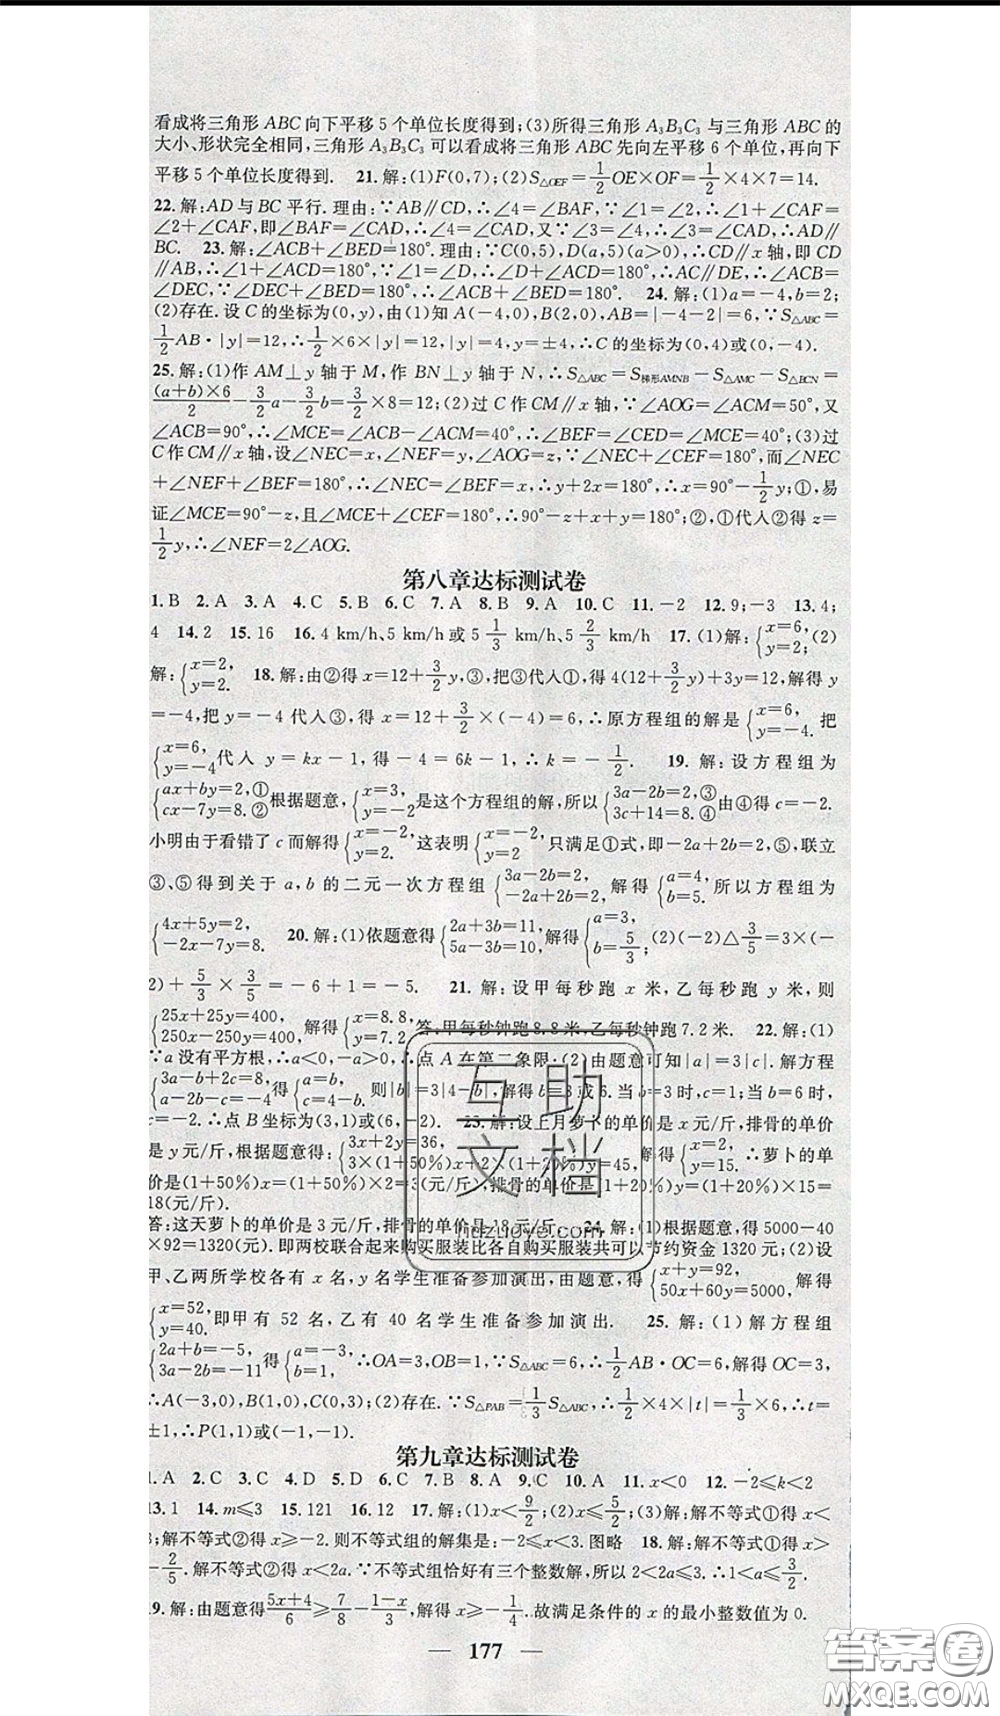 看成将三角形 ABC 向下平移 5 个单位长度得到;(3)所得三角形 A₃B₃C₃ 与三角形 ABC 的
大小、形状完全相同,三角形 A₃B₃C₃ 可以看成将三角形 ABC 先向左平移 6 个单位,再向下
平移 5 个单位长度得到. 21.解:(1)F(0,7);(2)S△OEF=1/2OE×OF=1/2×4×7=14.
22.解:AD 与 BC 平行.理由:∵AB∥CD,∴∠4=∠BAF,∵∠1=∠2,∴∠1+∠CAF=
∠2+∠CAF,即∠BAF=∠CAD,∴∠4=∠CAD,又∵∠3=∠4,∴∠3=∠CAD,∴AD∥
BC. 23.解:∠ACB+∠BED=180°.理由:∵C(0,5),D(a,5)(a>0),∴CD∥x 轴,即 CD
∥AB,∴∠1+∠ACD=180°,∵∠1=∠D,∴∠D+∠ACD=180°,∴AC∥DE,∴∠ACB=
∠DEC,∵∠DEC+∠BED=180°,∴∠ACB+∠BED=180°. 24.解:(1)a=-4,b=2;
(2)存在.设 C 的坐标为(0,y),由(1)知 A(-4,0),B(2,0),AB=|-4-2|=6,∵S△ABC=
1/2AB·|y|=12,∴1/2×6×|y|=12,∴|y|=4,y=±4,∴C 的坐标为(0,4)或(0,-4).
25.解:(1)作 AM⊥y 轴于 M,作 BN⊥y 轴于 N,∴S△ABC=S梯形AMNB-S△AMC-S△BCN=
(a+b)×6/2-3/2a-3/2b=3/2×8=12;(2)过 C 作 CM∥x 轴,∵∠AOG=∠ACM=50°,又
∠ACB=90°,∴∠MCE=∠ACB-∠ACM=40°,∴∠BEF=∠CED=∠MCE=40°;(3)过
C 作 CM∥x 轴,设∠NEC=x,∠NEF=y,∠AOG=z,∵∠NEC+∠CEF=180°,而∠NEC
+∠NEF+∠BEF=180°,∴∠NEC=∠BEF=x,∴y+2x=180°,∴x=90°-1/2y;①,易
证∠MCE=90°-z,且∠MCE+∠CEF=180°,∴90°-z+x+y=180°;②,①代入②得 z=
1/2y,∴∠NEF=2∠AOG.
第八章达标测试卷
1.B 2.A 3.A 4.C 5.B 6.C 7.A 8.B 9.A 10.C 11.-2 12.9;-3 13.4;
4 14.2 15.16 16.4 km/h、5 km/h 或 5 1/3 km/h、5 2/3 km/h 17.(1)解:{x=6, y=2;(2)
解:{x=2, y=2. 18.解:由②得 x=12+3/2y,③,把③代入①,得 4(12+3/2y)+3y=12,解得 y
=-4,把 y=-4 代入③,得 x=12+3/2×(-4)=6,∴原方程组的解是{x=6, y=-4. 把
{x=6, y=-4代入 y=kx-1,得-4=6k-1,∴k=-1/2. 19.解:设方程组为
{ax+by=2,① cx-7y=8.②根据题意,{x=3, y=-2是这个方程组的解,所以{3a-2b=2,③ 3c+14=8.④由④得 c=-2.
小明由于看错了 c 而解得{x=-2, y=2. 这表明{x=-2, y=2 只满足①式,即-2a+2b=2,⑤,联立
③、⑤得到关于 a,b 的二元一次方程组{3a-2b=2, -2a+2b=2,解得{a=4, b=5.所以方程组为
{4x+5y=2, -2x-7y=8. 20.解:(1)依题意得{2a+3b=11, 5a-3b=10,解得{a=3, b=5/3;(2)(-2)△3/5=3×(-
2)+5/3×3/5=-6+1=-5. 21.解:设甲每秒跑 x 米,乙每秒跑 y 米,则
{25x+25y=400, 250x-250y=400,解得{x=8.8, y=7.2.答:甲每秒钟跑 8.8 米,乙每秒钟跑 7.2 米. 22.解:(1)
∵a 没有平方根,∴a<0,-a>0,∴点 A 在第二象限;(2)由题意可知|a|=3|c|.解方程
{3a-b+2c=8, a-2b-c=-4得{a=b, c=4-b.则|b|=3|4-b|,解得 b=3 或 6.当 b=3 时,c=1;当 b=6 时,
c=-2.∴点 B 坐标为(3,1)或(6,-2). 23.解:设上月萝卜的单价是 x 元/斤,排骨的单价
是 y 元/斤,根据题意得:{3x+2y=36, 3×(1+50%)x+2×(1+20%)y=45,解得{x=2, y=15.∴萝卜的单
价是(1+50%)x=(1+50%)×2=3(元/斤),排骨的单价是(1+20%)y=(1+20%)×15=
18(元/斤).
答:这天萝卜的单价是 3 元/斤,排骨的单价是 18 元/斤. 24.解:(1)根据题意,得 5000-40
×92=1320(元).即两校联合起来购买服装比各自购买服装共可以节约资金 1320 元;(2)设
甲、乙两所学校各有 x 名,y 名学生准备参加演出,由题意,得{x+y=92, 50x+60y=5000,解得
{x=52, y=40.即甲有 52 名,乙有 40 名学生准备参加演出. 25.解:(1)解方程组
{2a+b=-5, 3a-2b=-11得{a=-3, b=1,∴OA=3,OB=1,∵S△ABC=6,∴1/2AB·OC=6,解得 OC=3,
∴A(-3,0),B(1,0),C(0,3);(2)存在.∵S△PAB=1/3S△ABC,∴1/2×4×|t|=1/3×6,∴t=
±1,∴P(1,1)或(1,-1).
第九章达标测试卷
1.A 2.C 3.C 4.D 5.D 6.C 7.B 8.A 9.C 10.A 11.x<0 12.-2≤k<2
13.1 14.m≤3 15.121 16.12 17.解:(1)x<9/2;(2)x≤5/2;(3)解:解不等式①得 x<
3;解不等式②得 x≥-2.则不等式组的解集是:-2≤x<3.图略 18.解:解不等式①得 x>
-2/5.解不等式②得 x<2a.∵不等式组恰好有三个整数解,所以 2<2a≤3.∴1<a≤3/2.
19.解:由题意得5x+4/6≥7/8-1-x/3,解得 x≥-1/4.故满足条件的 x 的最小整数值为 0.
— 177 —
互助
文档
huzuoye.com
答案卷
MXQE.COM